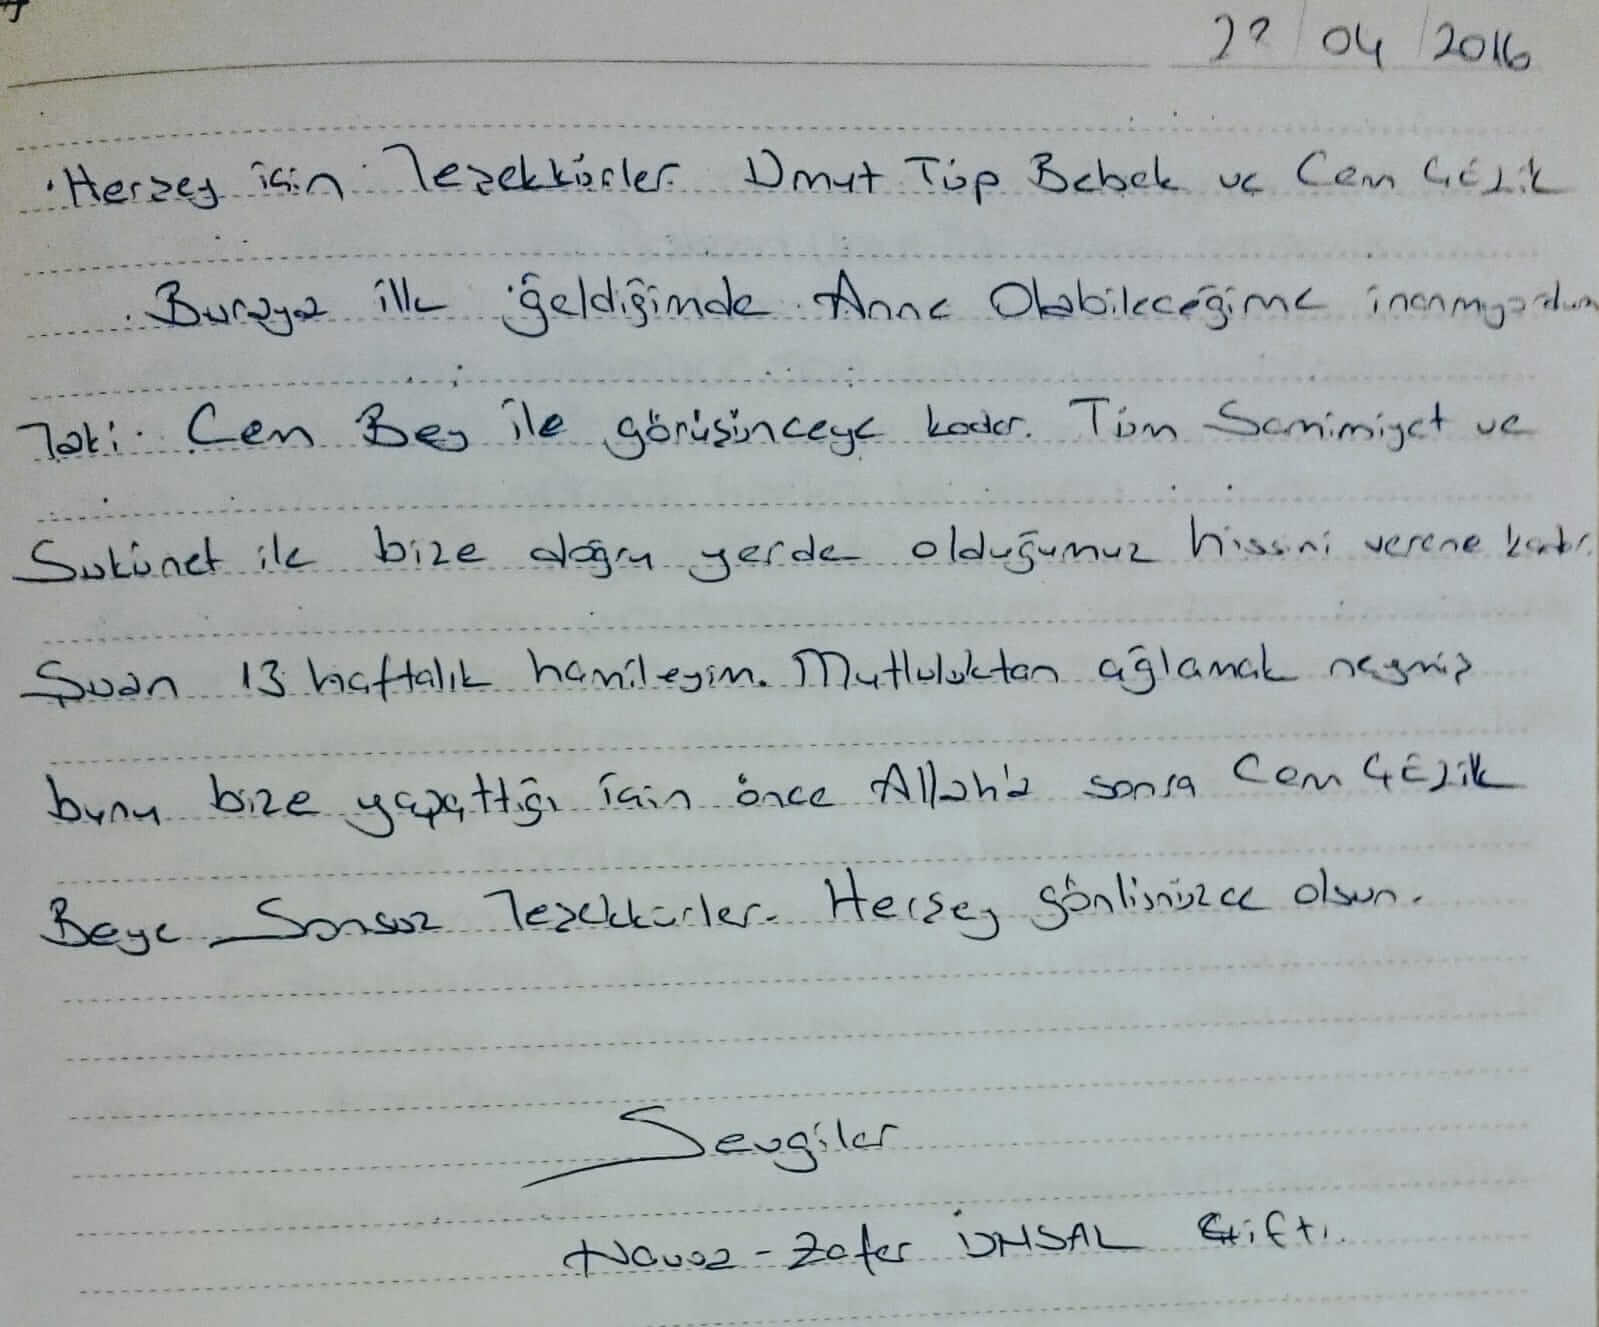 22/04/2016
Herşey için Teşekkürler. Umut Tüp Bebek ve Cem Çelik
Buraya ilk geldiğimde Anne Olabileceğime inanmıyordum
Taki Cem Bey ile görüşünceye kadar. Tüm Samimiyet ve
Sukünet ile bize doğru yerde olduğumuz hissini verene kadar.
Şuan 13 haftalık hamileyim. Mutluluktan ağlamak neymiş
bunu bize yaşattığı için önce Allah'a sonra Cem Çelik
Beye Sonsuz Teşekkürler. Herşey gönlünüzce olsun.
Sevgiler
Zafer ÜNSAL Çifti.